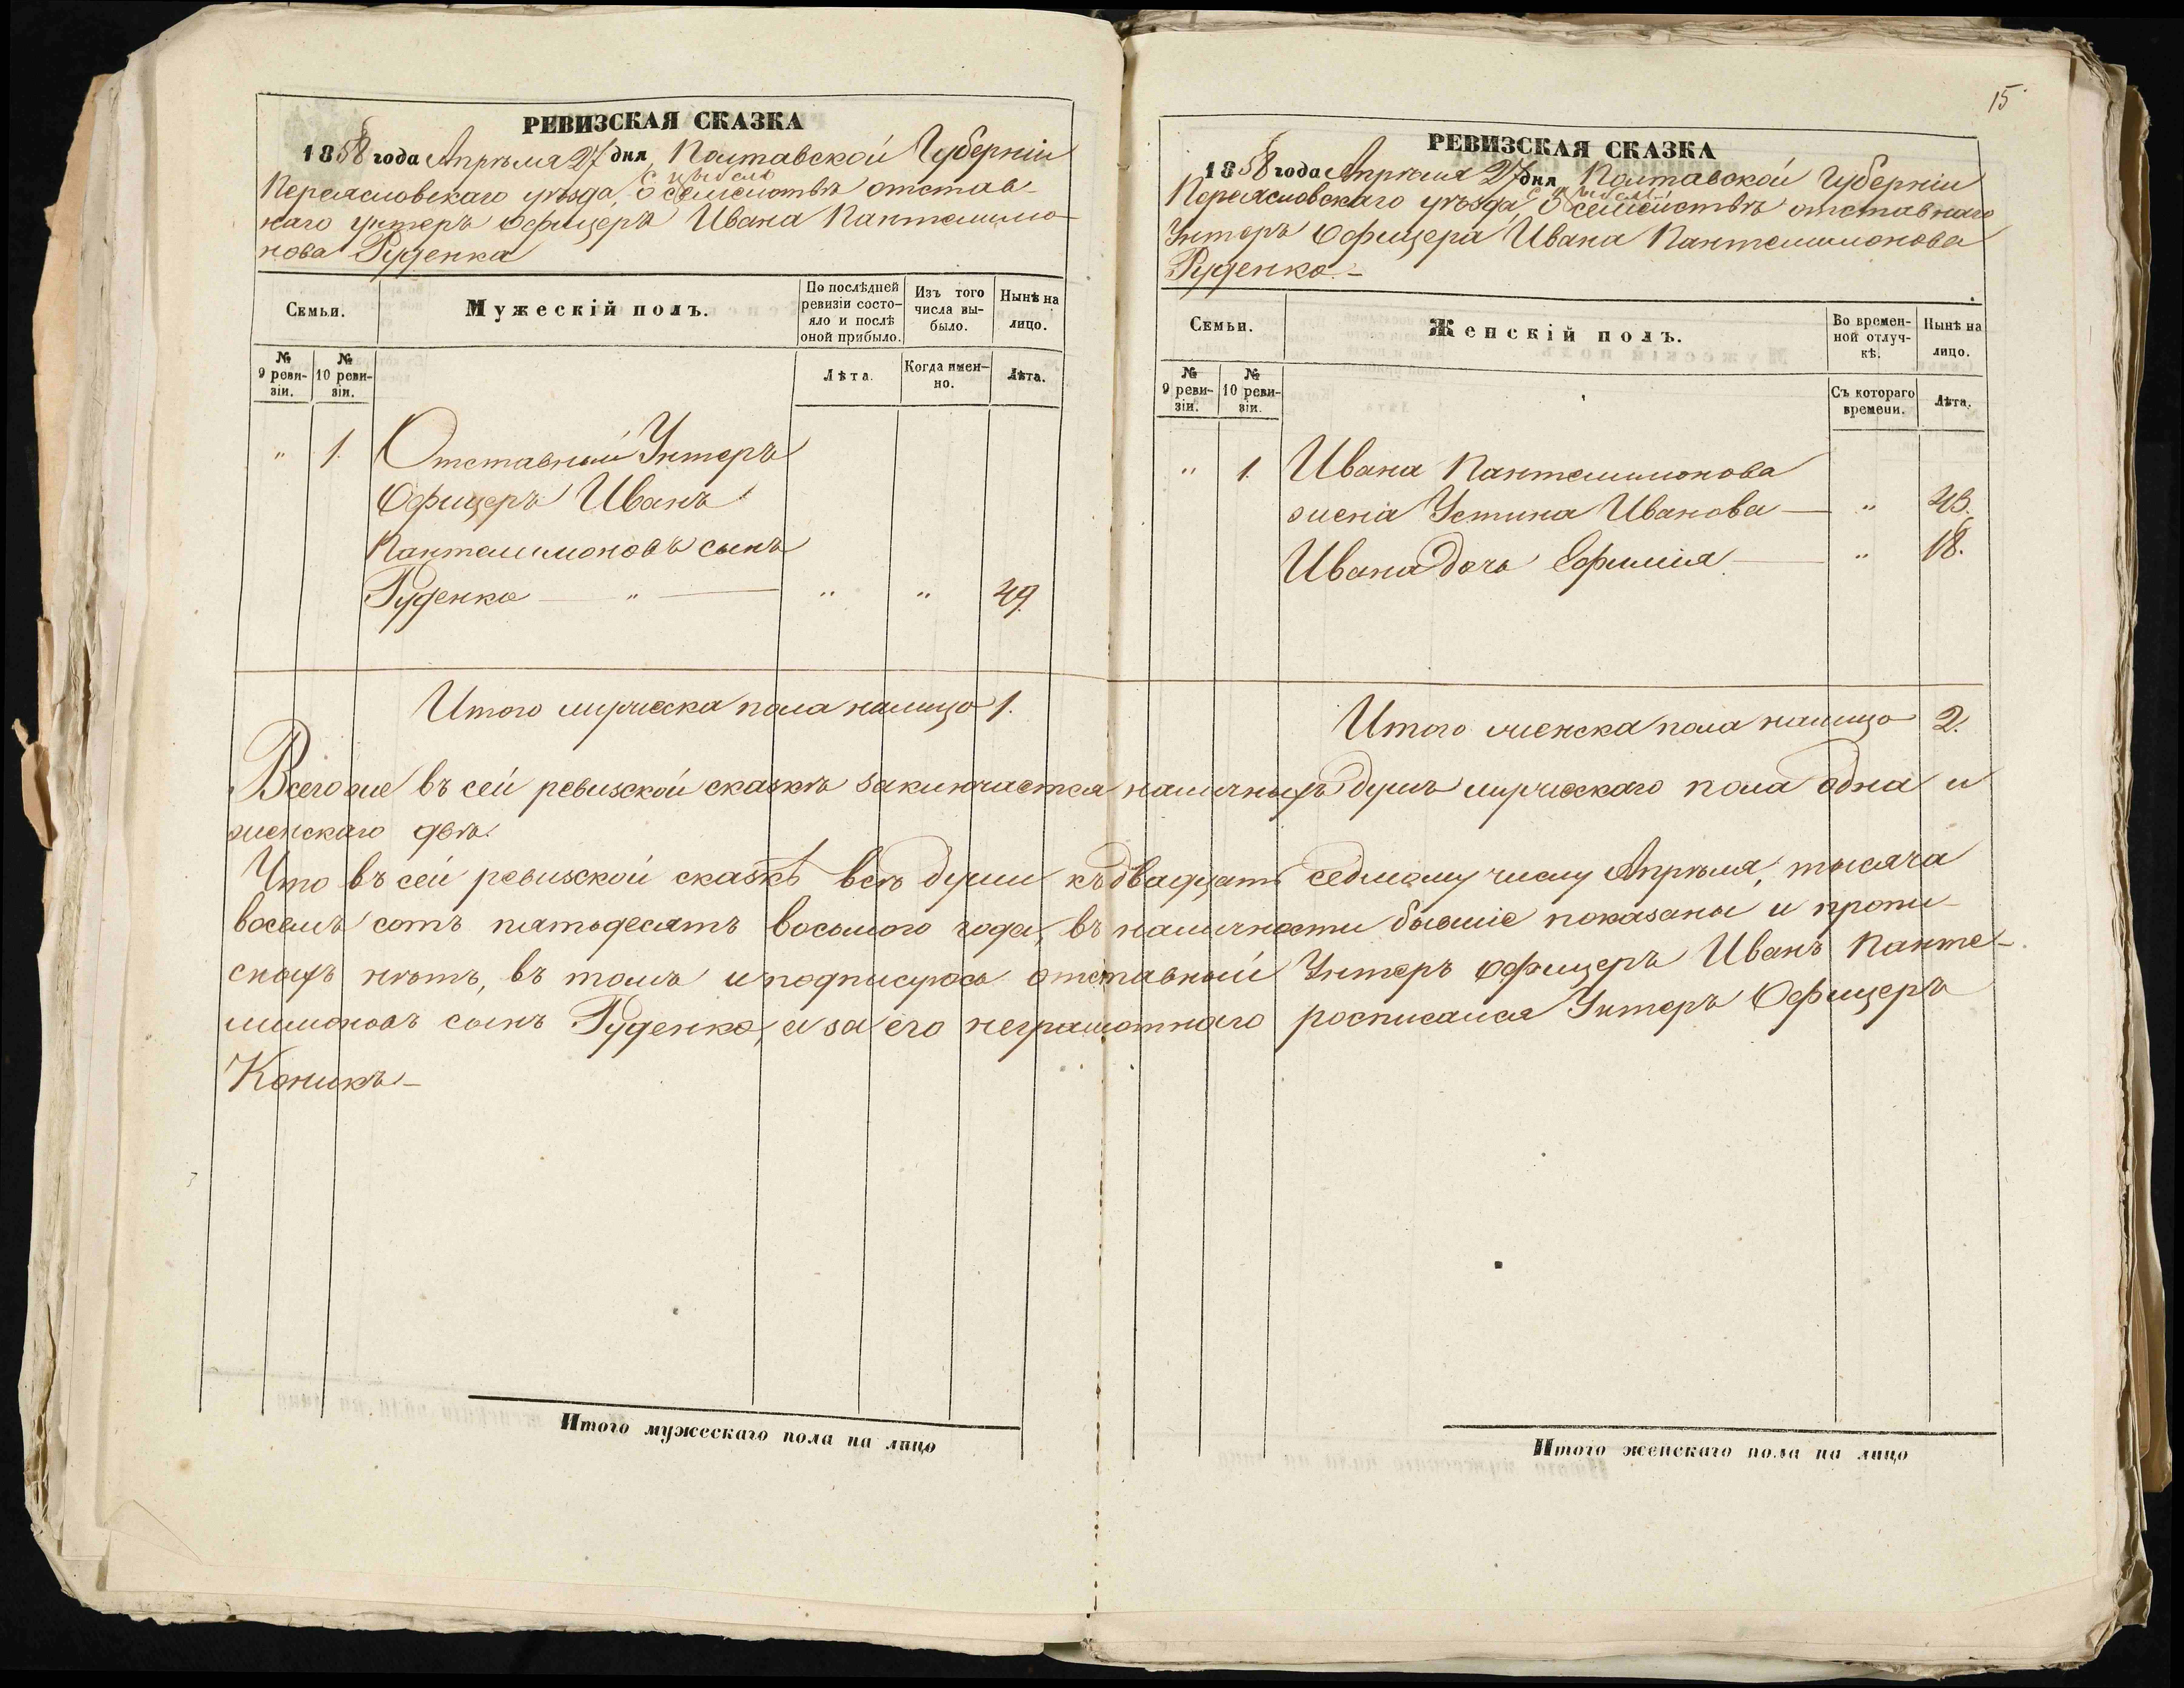 РЕВИЗСКАЯ СКАЗКА
1858 года Апрѣля 27 дня, Полтавской Губерніи
Переясловскаго уѣзда, О семействѣ отстав-
наго унтеръ Офицера Ивана Пантелимо-
нова Руденка
Семьи.
Мужескій полъ.
По послѣдней ревизіи состо-яло и послѣ оной прибыло.
Изъ того числа вы-было.
Нынѣ на лицо.
№ 9 реви-зіи.
№ 10 реви-зіи.
Лѣта.
Когда имен-но.
Лѣта.
" 1. Отставный Унтеръ
Офицеръ Иванъ
Пантелимоновъ сынъ
Руденко — " — " " 49.
Итого мужеска пола налицо 1.
15
РЕВИЗСКАЯ СКАЗКА
1858 года Апрѣля 27 дня Полтавской Губерніи
Переясловскаго уѣзда, О семействѣ отставнаго
Унтеръ Офицера Ивана Пантелимонова
Руденка.-
Семьи.
Женскій полъ.
Во времен-ной отлуч-кѣ.
Нынѣ на лицо.
№ 9 реви-зіи.
№ 10 реви-зіи.
Съ котораго времени.
Лѣта.
" 1. Ивана Пантелимонова
жена Устина Иванова — "
Ивана дочь Ефимія — " 18.
Итого женска пола налицо 2.
Всего же въ сей ревизской сказкѣ заключается наличныхъ душъ мужескаго пола одна и
женскаго двѣ.
Что въ сей ревизской сказкѣ всѣ души къ двадцать седмому числу Апрѣля, тысяча
восемъ сотъ пятьдесятъ восьмого года, въ наличности бывшіе показаны и пропи-
сныхъ нѣтъ, въ томъ и подписуюсь отставный Унтеръ офицеръ Иванъ Панте-
лимоновъ сынъ Руденко, а за его неграмотнаго росписался Унтеръ Офицеръ
Коникъ-
Итого мужескаго пола на лицо
Итого женскаго пола на лицо